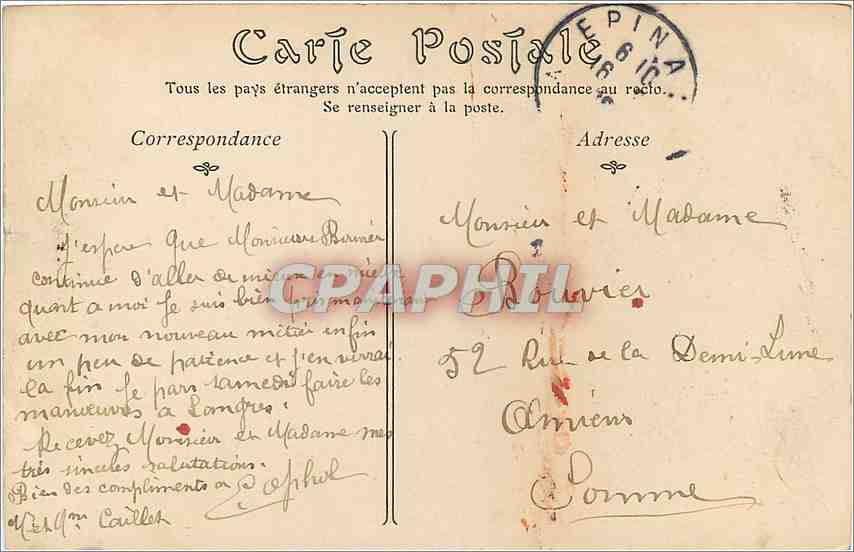 Carte Postale
Tous les pays étrangers n'acceptent pas la correspondance au recto.
Se renseigner à la poste.
EPINA
6
16 10
Correspondance
Monsieur et Madame
J'espere que Monsieur Bouvier
continue d'aller de mieux en mieux
quant a moi je suis bien pris maintenant
avec mon nouveau métier enfin
un peu de patience et j'en verrai
la fin je pars samedi faire les
manœuvres a Langres.
Recevez Monsieur et Madame mes
très sincères salutations.
Bien des compliments a
Mr et Mme Caillet
Adresse
Monsieur et Madame
Bouvier
52 Rue de la Demi-Lune
Amiens
Somme
CPAPHIL